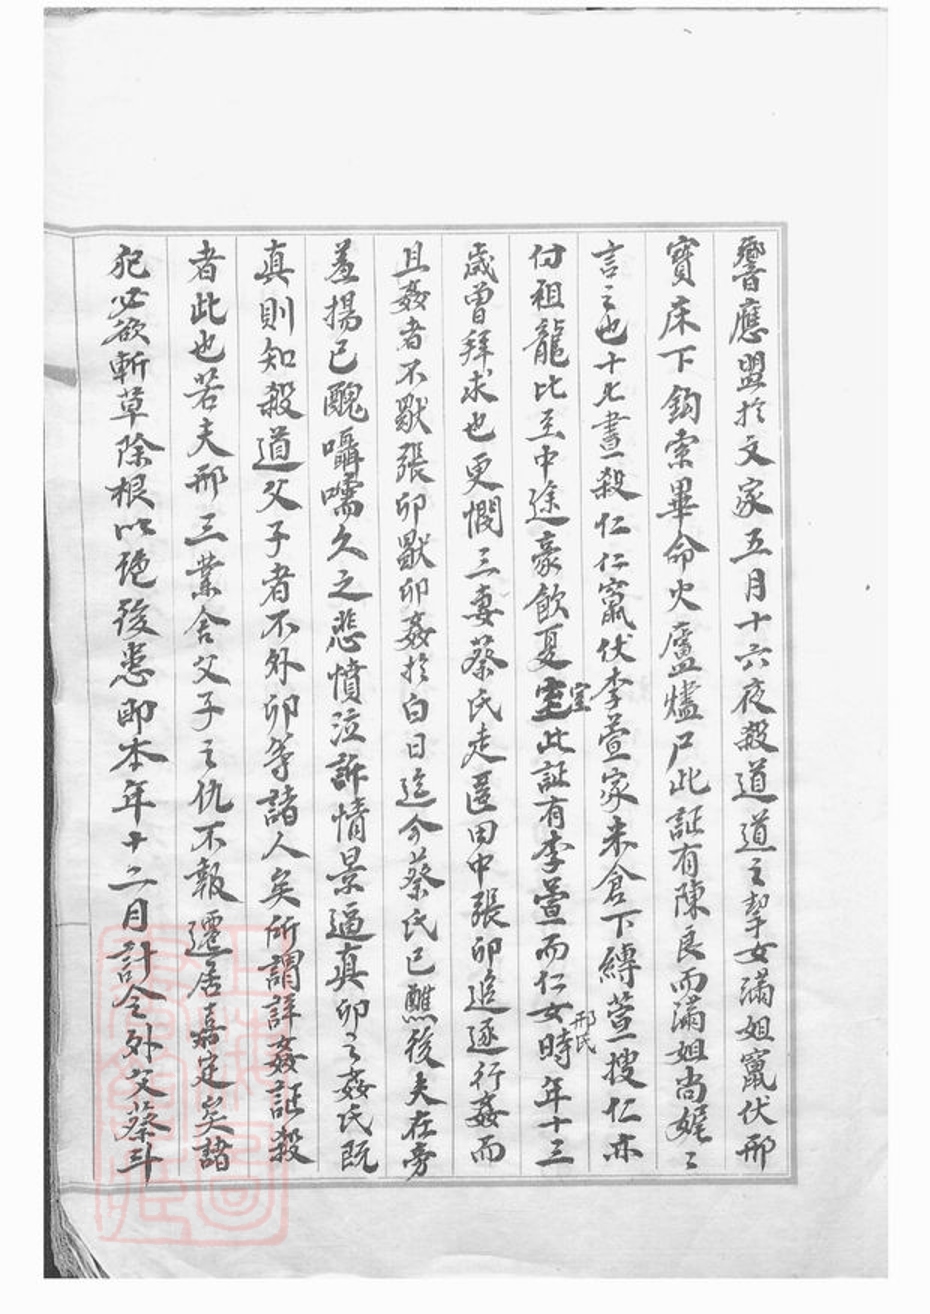 響應盟於文家五月十六夜殺道道之挈女滿姐竄伏邢
寶床下鈎索畢命火廬燼尸此証有陳良而滿姐尚娓〻
言之也十七晝殺仁仁竄伏李萱家米倉下縛萱搜仁亦
付祖龍比至中途豪飲夏室室此証有李萱而仁女邢氏時年十三
歲曾拜求也更憫三妻蔡氏走匿田中張卯追逐行姦而
且姦者不歇張卯歇卯姦於白日迄今蔡氏已醮後夫在旁
羞揚己醜囁嚅久之悲憤泣訴情景逼真卯之姦氏既
真則知殺道父子者不外卯等諸人矣所謂詳姦証殺
者此也若夫邢三業舍父子之仇不報遷居嘉定矣諸
犯必欲斬草除根以絕後患即本年十二月計令外父蔡斗